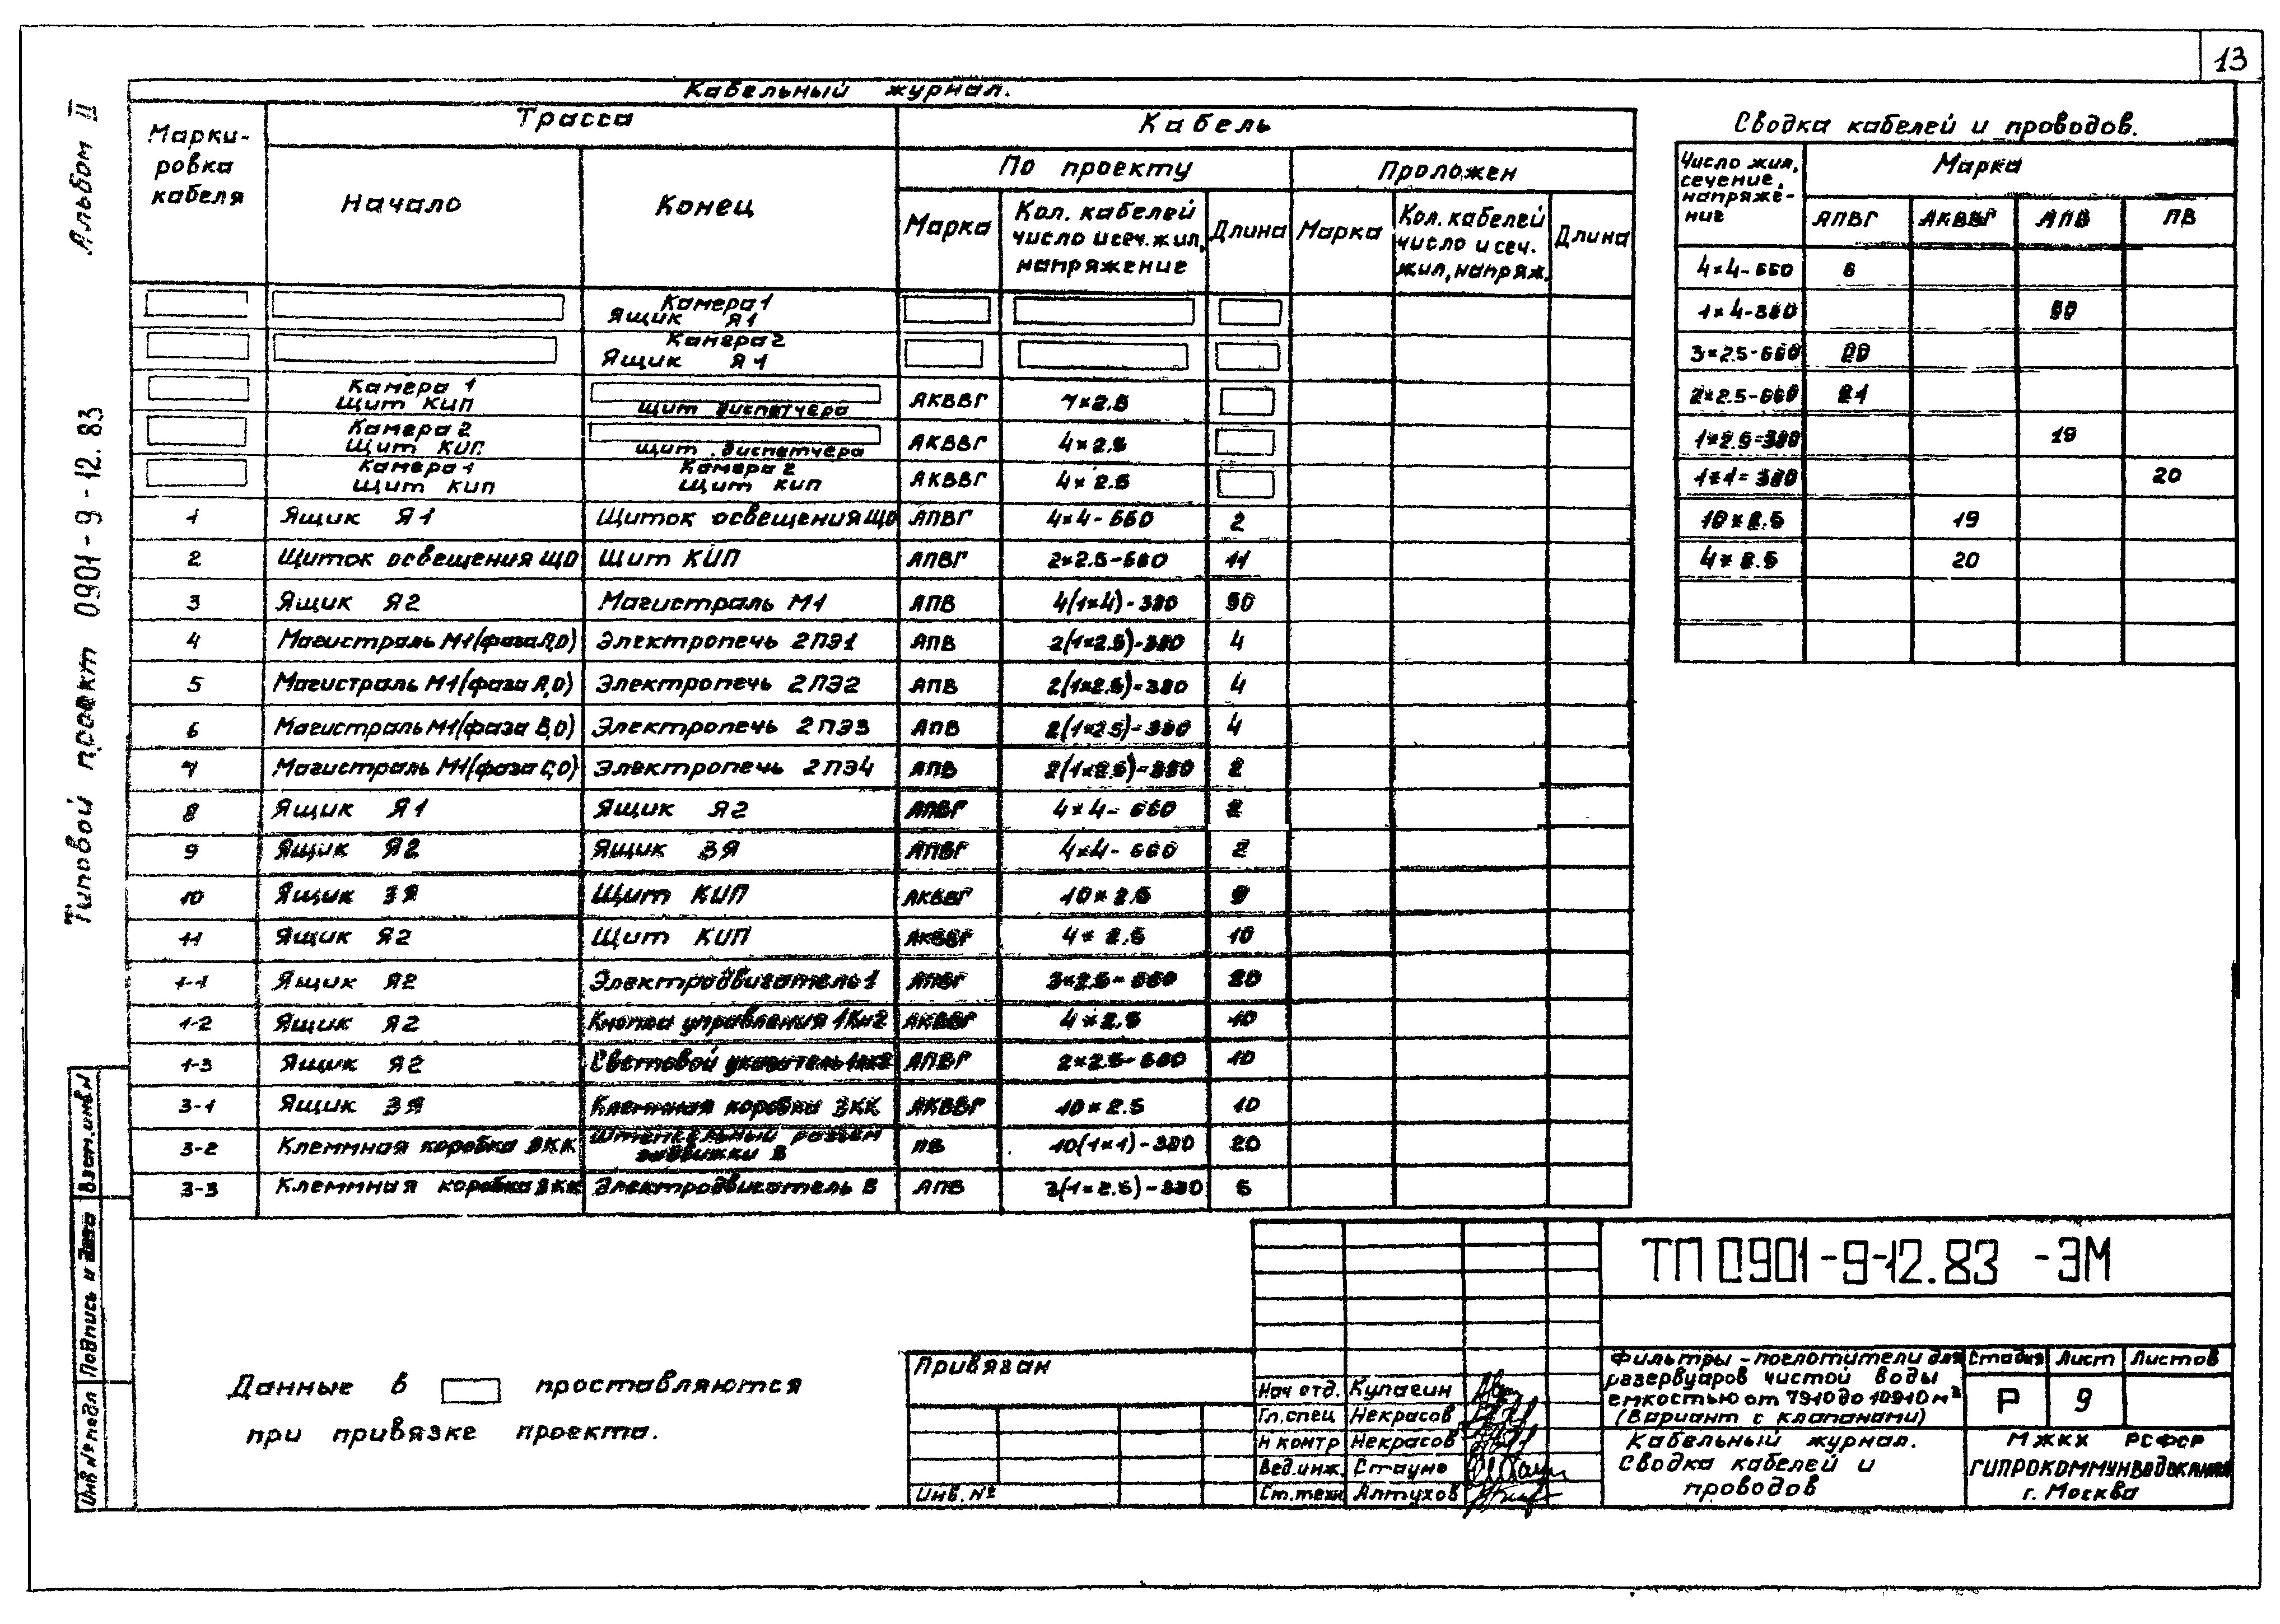 13
Альбом II
Типовой проект 0901-9-12.83
Кабельный журнал.
Марки-
ровка
кабеля
Трасса
Кабель
Начало
Конец
По проекту
Проложен
Марка
Кол. кабелей
число и сеч. жил,
напряжение
Длина
Марка
Кол. кабелей
число и сеч.
жил, напряж.
Длина
Камера 1
Ящик Я1
Камера 2
Ящик Я1
Камера 1
Щит КИП щит диспетчера АКВВГ 7×2.5
Камера 2
Щит КИП щит диспетчера АКВВГ 4×2.5
Камера 1 Камера 2
Щит КИП Щит КИП АКВВГ 4×2.5
1 Ящик Я1 Щиток освещения ЩО АПВГ 4×4-660 2
2 Щиток освещения ЩО Щит КИП АПВГ 2×2.5-660 11
3 Ящик Я2 Магистраль М1 АПВ 4(1×4)-380
4 Магистраль М1(фаза А,О) Электропечь 2ПЭ1 АПВ 2(1×2.5)-380 4
5 Магистраль М1(фаза А,О) Электропечь 2ПЭ2 АПВ 2(1×2.5)-380 4
6 Магистраль М1(фаза В,О) Электропечь 2ПЭ3 АПВ 2(1×2.5)-380 4
7 Магистраль М1(фаза С,О) Электропечь 2ПЭ4 АПВ 2(1×2.5)-380 2
8 Ящик Я1 Ящик Я2 АПВГ 4×4-660 2
9 Ящик Я2 Ящик 3Я АПВГ 4×4-660 2
10 Ящик 3Я Щит КИП АКВВГ 10×2.5 9
11 Ящик Я2 Щит КИП АКВВГ 4×2.5 10
1-1 Ящик Я2 Электродвигатель 1 АПВГ 3×2.5-660 20
1-2 Ящик Я2 Кнопка управления 1Кн2 АКВВГ 4×2.5 10
1-3 Ящик Я2 Световой указатель АПВГ 2×2.5-660 10
3-1 Ящик 3Я Клеммная коробка 3КК АКВВГ 10×2.5 10
3-2 Клеммная коробка 3КК Штепсельный разъем
задвижки 3 ПВ 10(1×1)-380 20
3-3 Клеммная коробка 3КК Электродвигатель 3 АПВ 3(1×2.5)-380 5
Сводка кабелей и проводов.
Число жил,
сечение,
напряже-
ние
Марка
АПВГ АКВВГ АПВ ПВ
4×4-660 6
1×4-380
3×2.5-660 20
2×2.5-660 21
1×2.5-380 19
1×1-380 20
10×2.5 19
4×2.5 20
Данные в проставляются
при привязке проекта.
Взам.инв.N
Подпись и дата
Инв № подл
Привязан
Инв. №
Нач отд. Кулагин
Гл.спец Некрасов
Н контр Некрасов
Вед.инж. Стауно
Ст.техн Алтухов
ТП 0901-9-12.83 -ЭМ
Фильтры-поглотители для
резервуаров чистой воды
емкостью от 7910 до 10910 м³
(Вариант с клапанами)
Стадия Лист Листов
Р 9
Кабельный журнал.
Сводка кабелей и
проводов
МЖКХ РСФСР
ГИПРОКОММУНВОДОКАНАЛ
г. Москва